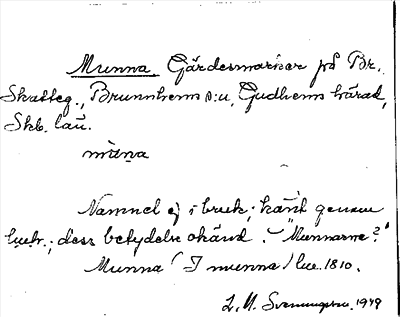 Munna Gärdesmarker på Br.
Skatteg., Brunnhems s:n, Gudhems härad,
Skb. län.
mùna
Namnet ej i bruk; känt genom
lantm.; dess betydelse okänd. "Munnarne?"
Munna (I munna) lm. 1810.
L. M. Svenungsson. 1949